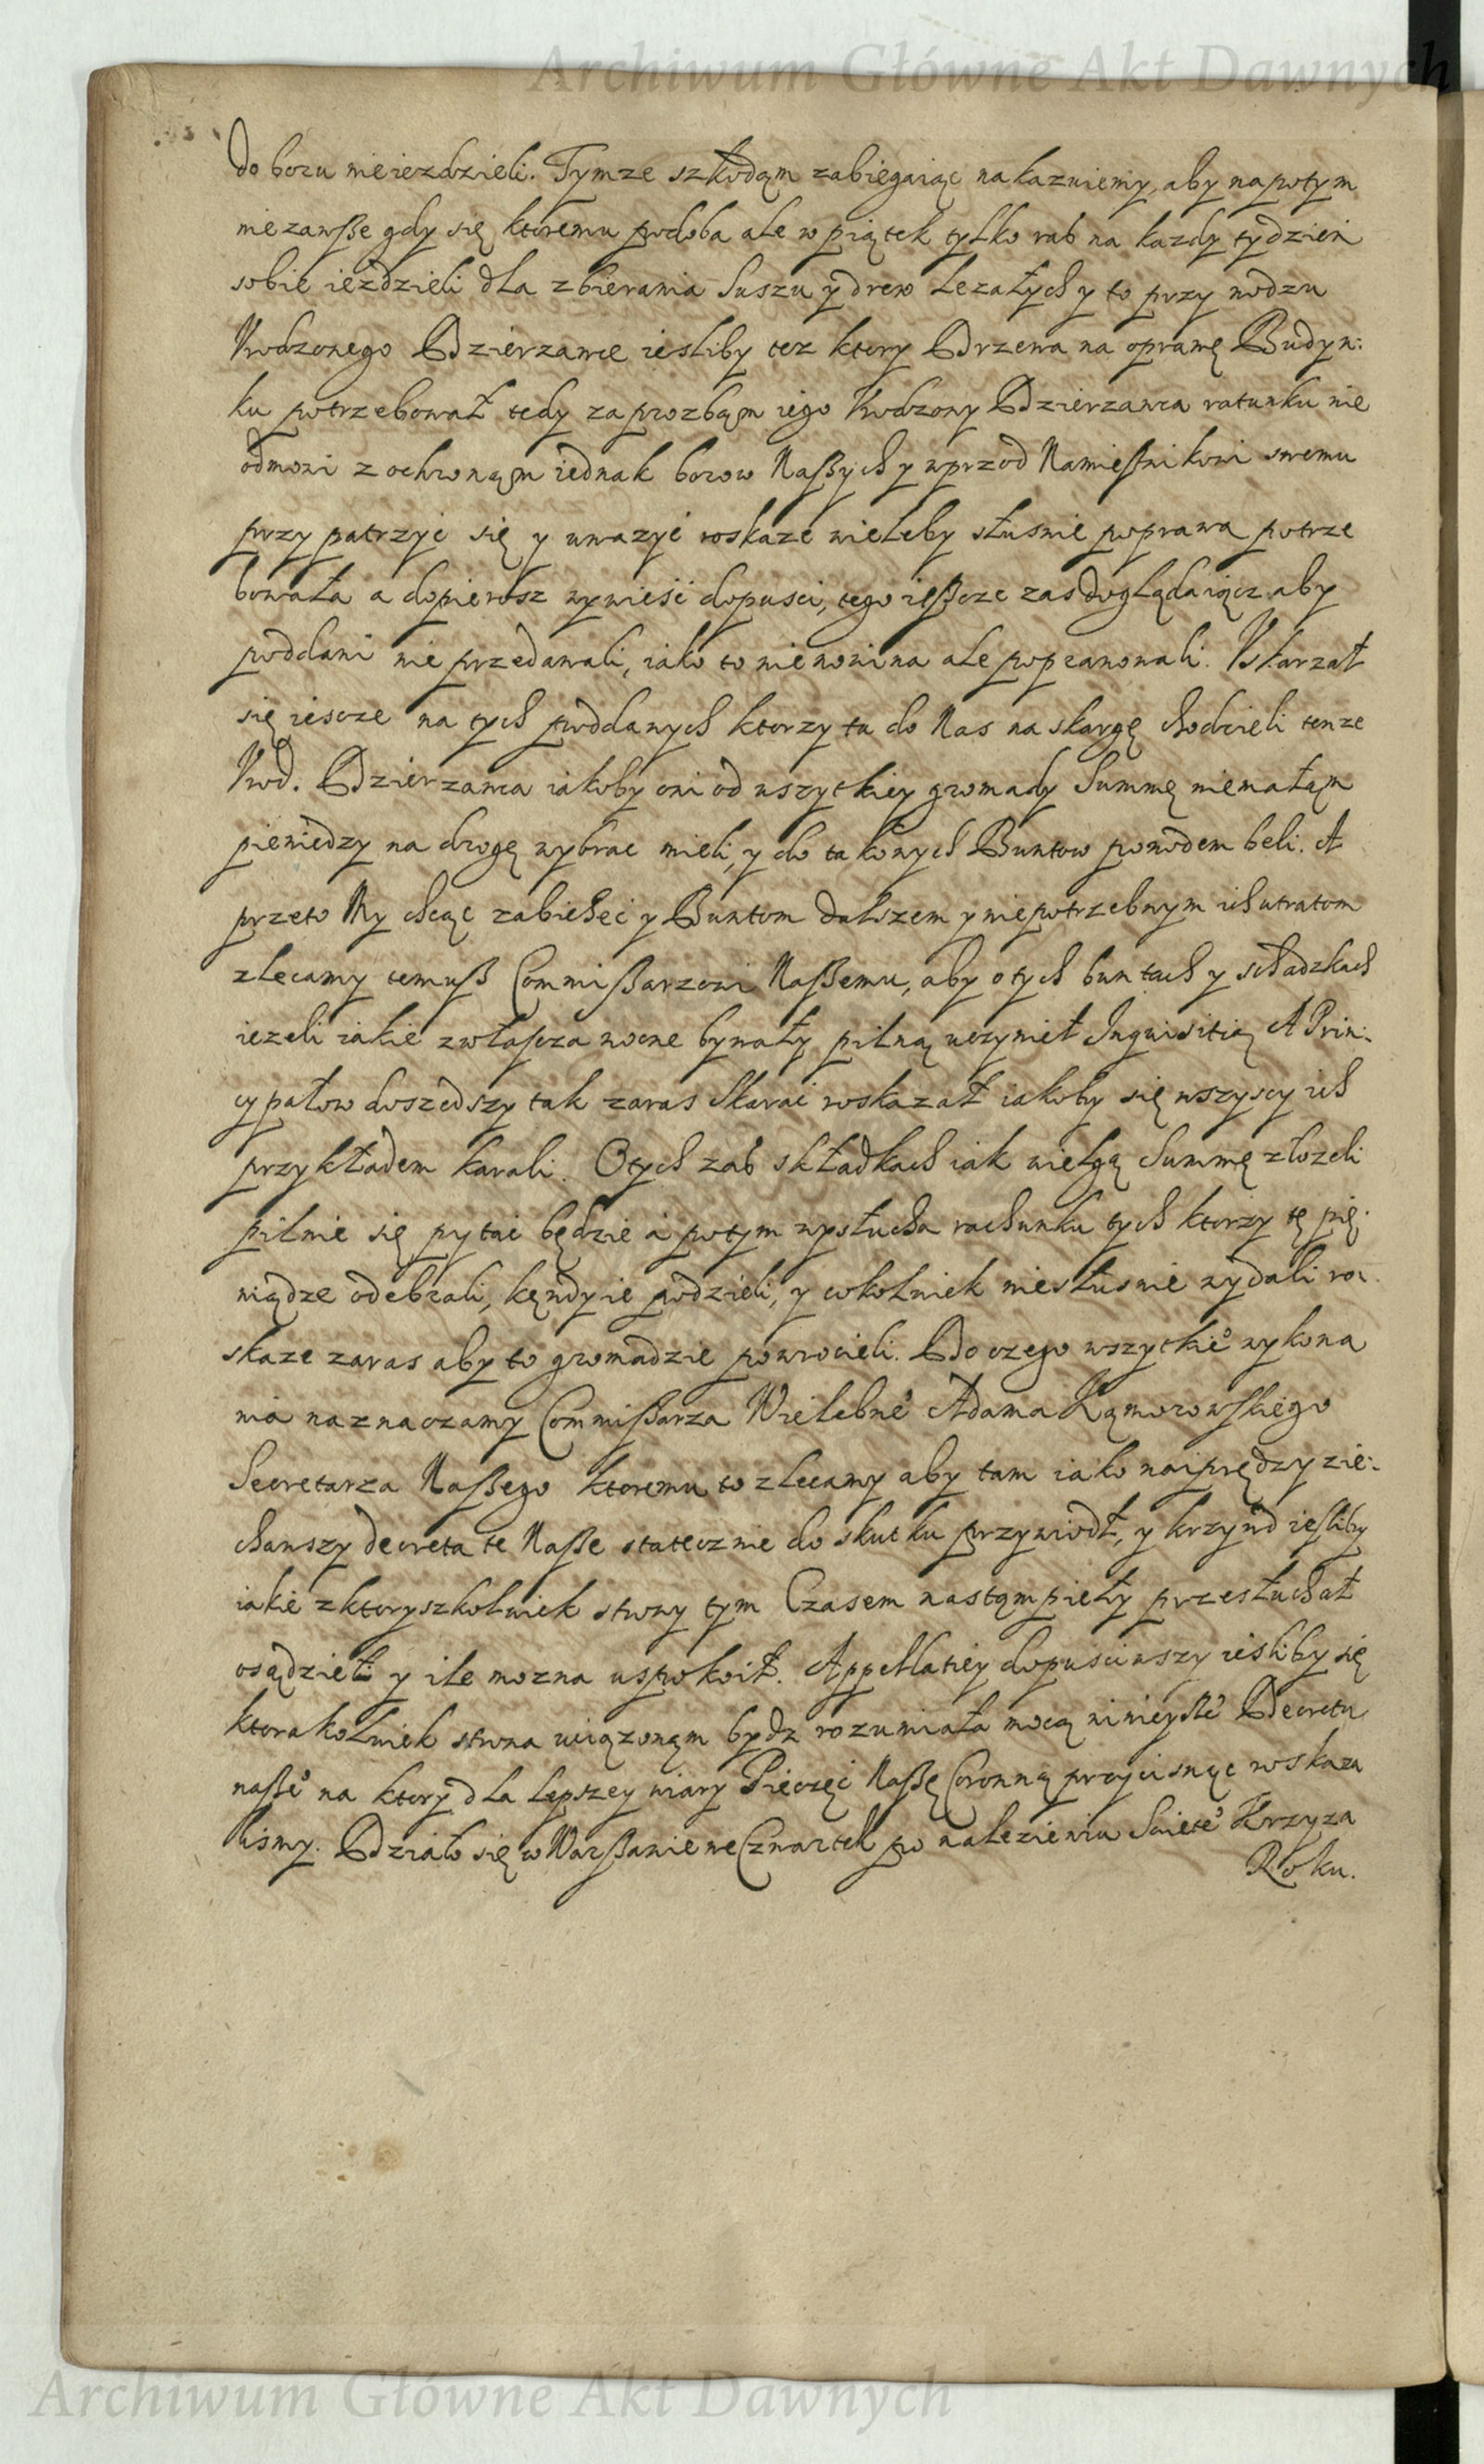 Archiwum Główne Akt Dawnych
do boru nieiezdzieli. Tymze szkodąm zabiegaiąc nakazuiemy, aby napotym
niezawße gdy się ktoremu podoba ale w piątek tylko raz na kazdy tydzien
sobie ieździeli dla zbierania suszu y drew lezałych y to przy wodzu
Urodzonego Dzierzawce iesliby tez ktory Drzewa na oprawę Budyn:
ku potrzebował tedy za prozbąm iego Urodzony Dzierzawca ratunku nie
odmowi z ochronąm iednak borow Naßych y wprzod Namiestnikowi swemu
przypatrzyć się y uwazyć roskaze wieleby słusnie poprawa potrze
bowała a dopierosz wywieść dopusci, tego ießcze zas doglądaiącz aby
poddani nie przedawali, iako to nie nowina ale popeawowali. Uskarzał
się iescze na tych poddanych ktorzy tu do Nas na skargę chodzieli tenze
Urod. Dzierzawca iakoby oni od wszytkiey gromady Summę niemałąm
pieniedzy na drogę wybrac mieli, y do takowych Buntow powodem beli. A
przeto My chcąc zabiezeć y Buntom dalszem y niepotrzebnym ich utratom
zlecamy temuß Commißarzowi Naßemu, aby o tych buntach y schadzkach
iezeli iakie zwłaßcza nocne bywały pilną uczynieł Inquisitią A Prin:
cypałow doszedszy tak zaras skarać roskazał iakoby się wszyscy ich
przykładem karali. O tych zaś składkach iak wielgą Summę złozeli
pilnie się pytać będzie a potym wysłucha rachunku tych ktorzy tę pię:
niądze odebrali, kęndy ie podzieli, y cokolwiek niesłusnie wydali ro:
skaze zaras aby to gromadzie powrocieli. Do czego wszytkie° wykona
nia naznaczamy Commißarza Wielebne° Adama Kąmorowskiego
Secretarza Naßego ktoremu to zlecamy aby tam iako naiprędzy zie:
chawszy decreta te Naße statecznie do skutku przywiodł, y krzywd iesliby
iakie z ktoryszkolwiek strony tym Czasem nastąmpieły przesłuchał
osądzieł y ile mozna uspokoił. Appellatiey dopusciwszy iesliby się
ktorakolwiek strona uciązonąm bydz rozumiała mocą ninieyße° Decretu
naße° na ktory dla lepszey wiary Pieczęć Naßę Coronną przycisnąc roskaza
lismy. Działo się w Warßawie we Czwartek po nalezieniu Swiete° Krzyza
Roku.
Archiwum Główne Akt Dawnych